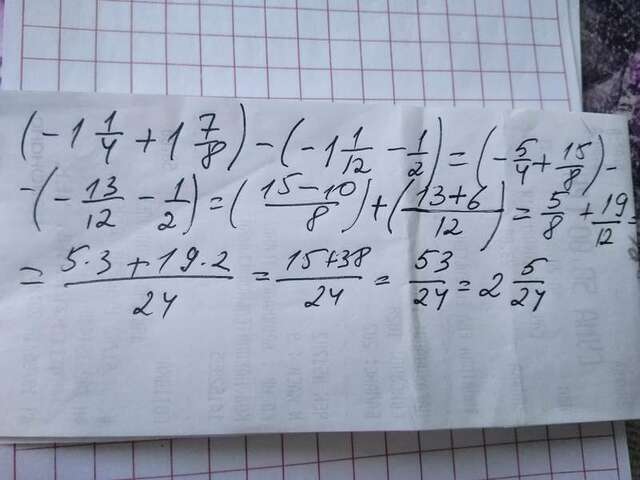 (-1 1/4 + 1 7/8) - (-1 1/12 - 1/2) = (-5/4 + 15/8) -
-(-13/12 - 1/2) = (15-10/8) + (13+6/12) = 5/8 + 19/12 =
= 5·3+19·2/24 = 15+38/24 = 53/24 = 2 5/24